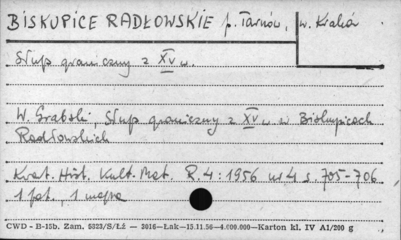 BISKUPICE RADŁOWSKIE p. Tarnów, w. Kraków
Słup graniczny z XV w.
W. Grabski, Słup graniczny z XV w. w Biskupicach
Radłowskich
Kwat. Hist. Kult. Mat. R. 4: 1956 nr 4 s. 705-706
1 fot., 1 mapa
CWD - B-15b. Zam. 5023/S/Łź — 3016—Łak—15.11.56—4.000.000—Karton kl. IV A1/200 g